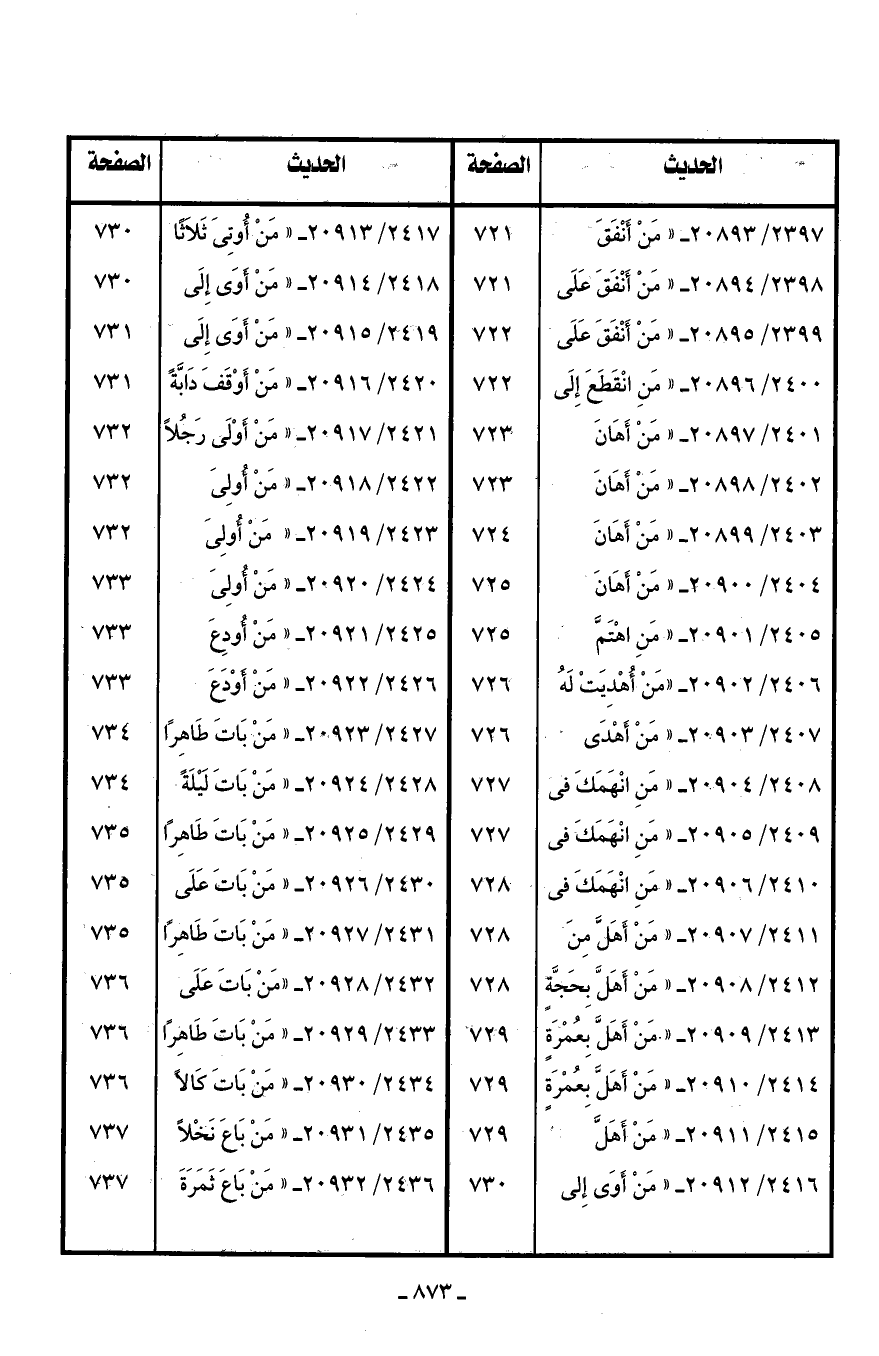 الحديث الصفحة الحديث الصفحة
٢٣٩٧/ ٢٠٨٩٣ـ « مَنْ أَنْفَقَ ٧٢١ ٢٤١٧/ ٢٠٩١٣ـ « مَنْ أُوتِىَ ثَلاَثًا ٧٣٠
٢٣٩٨/ ٢٠٨٩٤ـ « مَنْ أَنْفَقَ عَلَى ٧٢١ ٢٤١٨/ ٢٠٩١٤ـ « مَنْ أَوَى إِلَى ٧٣٠
٢٣٩٩/ ٢٠٨٩٥ـ « مَنْ أَنْفَقَ عَلَى ٧٢٢ ٢٤١٩/ ٢٠٩١٥ـ « مَنْ أَوَى إِلَى ٧٣١
٢٤٠٠/ ٢٠٨٩٦ـ « مَنِ انْقَطَعَ إِلَى ٧٢٢ ٢٤٢٠/ ٢٠٩١٦ـ « مَنْ أَوْقَفَ دَابَّةً ٧٣١
٢٤٠١/ ٢٠٨٩٧ـ « مَنْ أَهَانَ ٧٢٣ ٢٤٢١/ ٢٠٩١٧ـ « مَنْ أَوْلَى رَجُلاً ٧٣٢
٢٤٠٢/ ٢٠٨٩٨ـ « مَنْ أَهَانَ ٧٢٣ ٢٤٢٢/ ٢٠٩١٨ـ « مَنْ أُولِىَ ٧٣٢
٢٤٠٣/ ٢٠٨٩٩ـ « مَنْ أَهَانَ ٧٢٤ ٢٤٢٣/ ٢٠٩١٩ـ « مَنْ أُولِىَ ٧٣٢
٢٤٠٤/ ٢٠٩٠٠ـ « مَنْ أَهَانَ ٧٢٥ ٢٤٢٤/ ٢٠٩٢٠ـ « مَنْ أُولِىَ ٧٣٣
٢٤٠٥/ ٢٠٩٠١ـ « مَنِ اهْتَمَّ ٧٢٥ ٢٤٢٥/ ٢٠٩٢١ـ « مَنْ أُودِعَ ٧٣٣
٢٤٠٦/ ٢٠٩٠٢ـ «مَنْ أُهْدِيَتْ لَهُ ٧٢٦ ٢٤٢٦/ ٢٠٩٢٢ـ « مَنْ أَوْدَعَ ٧٣٣
٢٤٠٧/ ٢٠٩٠٣ـ « مَنْ أَهْدَى ٧٢٦ ٢٤٢٧/ ٢٠٩٢٣ـ « مَنْ بَاتَ طَاهِرًا ٧٣٤
٢٤٠٨/ ٢٠٩٠٤ـ « مَنِ انْهَمَكَ فى ٧٢٧ ٢٤٢٨/ ٢٠٩٢٤ـ « مَنْ بَاتَ لَيْلَةً ٧٣٤
٢٤٠٩/ ٢٠٩٠٥ـ « مَنِ انْهَمَكَ فى ٧٢٧ ٢٤٢٩/ ٢٠٩٢٥ـ « مَنْ بَاتَ طَاهِرًا ٧٣٥
٢٤١٠/ ٢٠٩٠٦ـ « مَنِ انْهَمَكَ فى ٧٢٨ ٢٤٣٠/ ٢٠٩٢٦ـ « مَنْ بَاتَ عَلَى ٧٣٥
٢٤١١/ ٢٠٩٠٧ـ « مَنْ أَهَلَّ مِنَ ٧٢٨ ٢٤٣١/ ٢٠٩٢٧ـ « مَنْ بَاتَ طَاهِرًا ٧٣٥
٢٤١٢/ ٢٠٩٠٨ـ « مَنْ أَهَلَّ بِحَجَّةٍ ٧٢٨ ٢٤٣٢/ ٢٠٩٢٨ـ «مَنْ بَاتَ عَلَى ٧٣٦
٢٤١٣/ ٢٠٩٠٩ـ « مَنْ أَهَلَّ بِعُمْرَةٍ ٧٢٩ ٢٤٣٣/ ٢٠٩٢٩ـ « مَنْ بَاتَ طَاهِرًا ٧٣٦
٢٤١٤/ ٢٠٩١٠ـ « مَنْ أَهَلَّ بِعُمْرَةٍ ٧٢٩ ٢٤٣٤/ ٢٠٩٣٠ـ « مَنْ بَاتَ كَالاً ٧٣٦
٢٤١٥/ ٢٠٩١١ـ « مَنْ أَهَلَّ ٧٢٩ ٢٤٣٥/ ٢٠٩٣١ـ « مَنْ بَاعَ نَخْلاً ٧٣٧
٢٤١٦/ ٢٠٩١٢ـ « مَنْ أَوَى إلى ٧٣٠ ٢٤٣٦/ ٢٠٩٣٢ـ « مَنْ بَاعَ ثَمَرَةَ ٧٣٧
ـ ٨٧٣ ـ